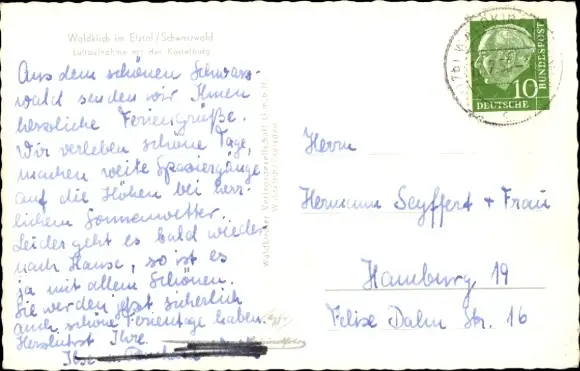 Waldkirch im Elztal / Schwarzwald
Luftaufnahme mit der Kastelburg
Aus dem schönen Schwarz-
wald senden wir Ihnen
herzliche Feriengrüße.
Wir verleben schöne Tage,
machen weite Spaziergänge
auf die Höhen bei herr-
lichem Sonnenwetter.
Leider geht es bald wieder
nach Hause, so ist es
ja mit allem Schönen.
Sie werden jetzt sicherlich
auch schöne Ferientage haben.
Herzlichst Ihre
Ilse
Waldkircher Verlagsgesellschaft m.b.H.
Waldkirch
DEUTSCHE
BUNDESPOST
10
Herrn
Hermann Seyffert + Frau
Hamburg 19
Felix Dahn Str. 16